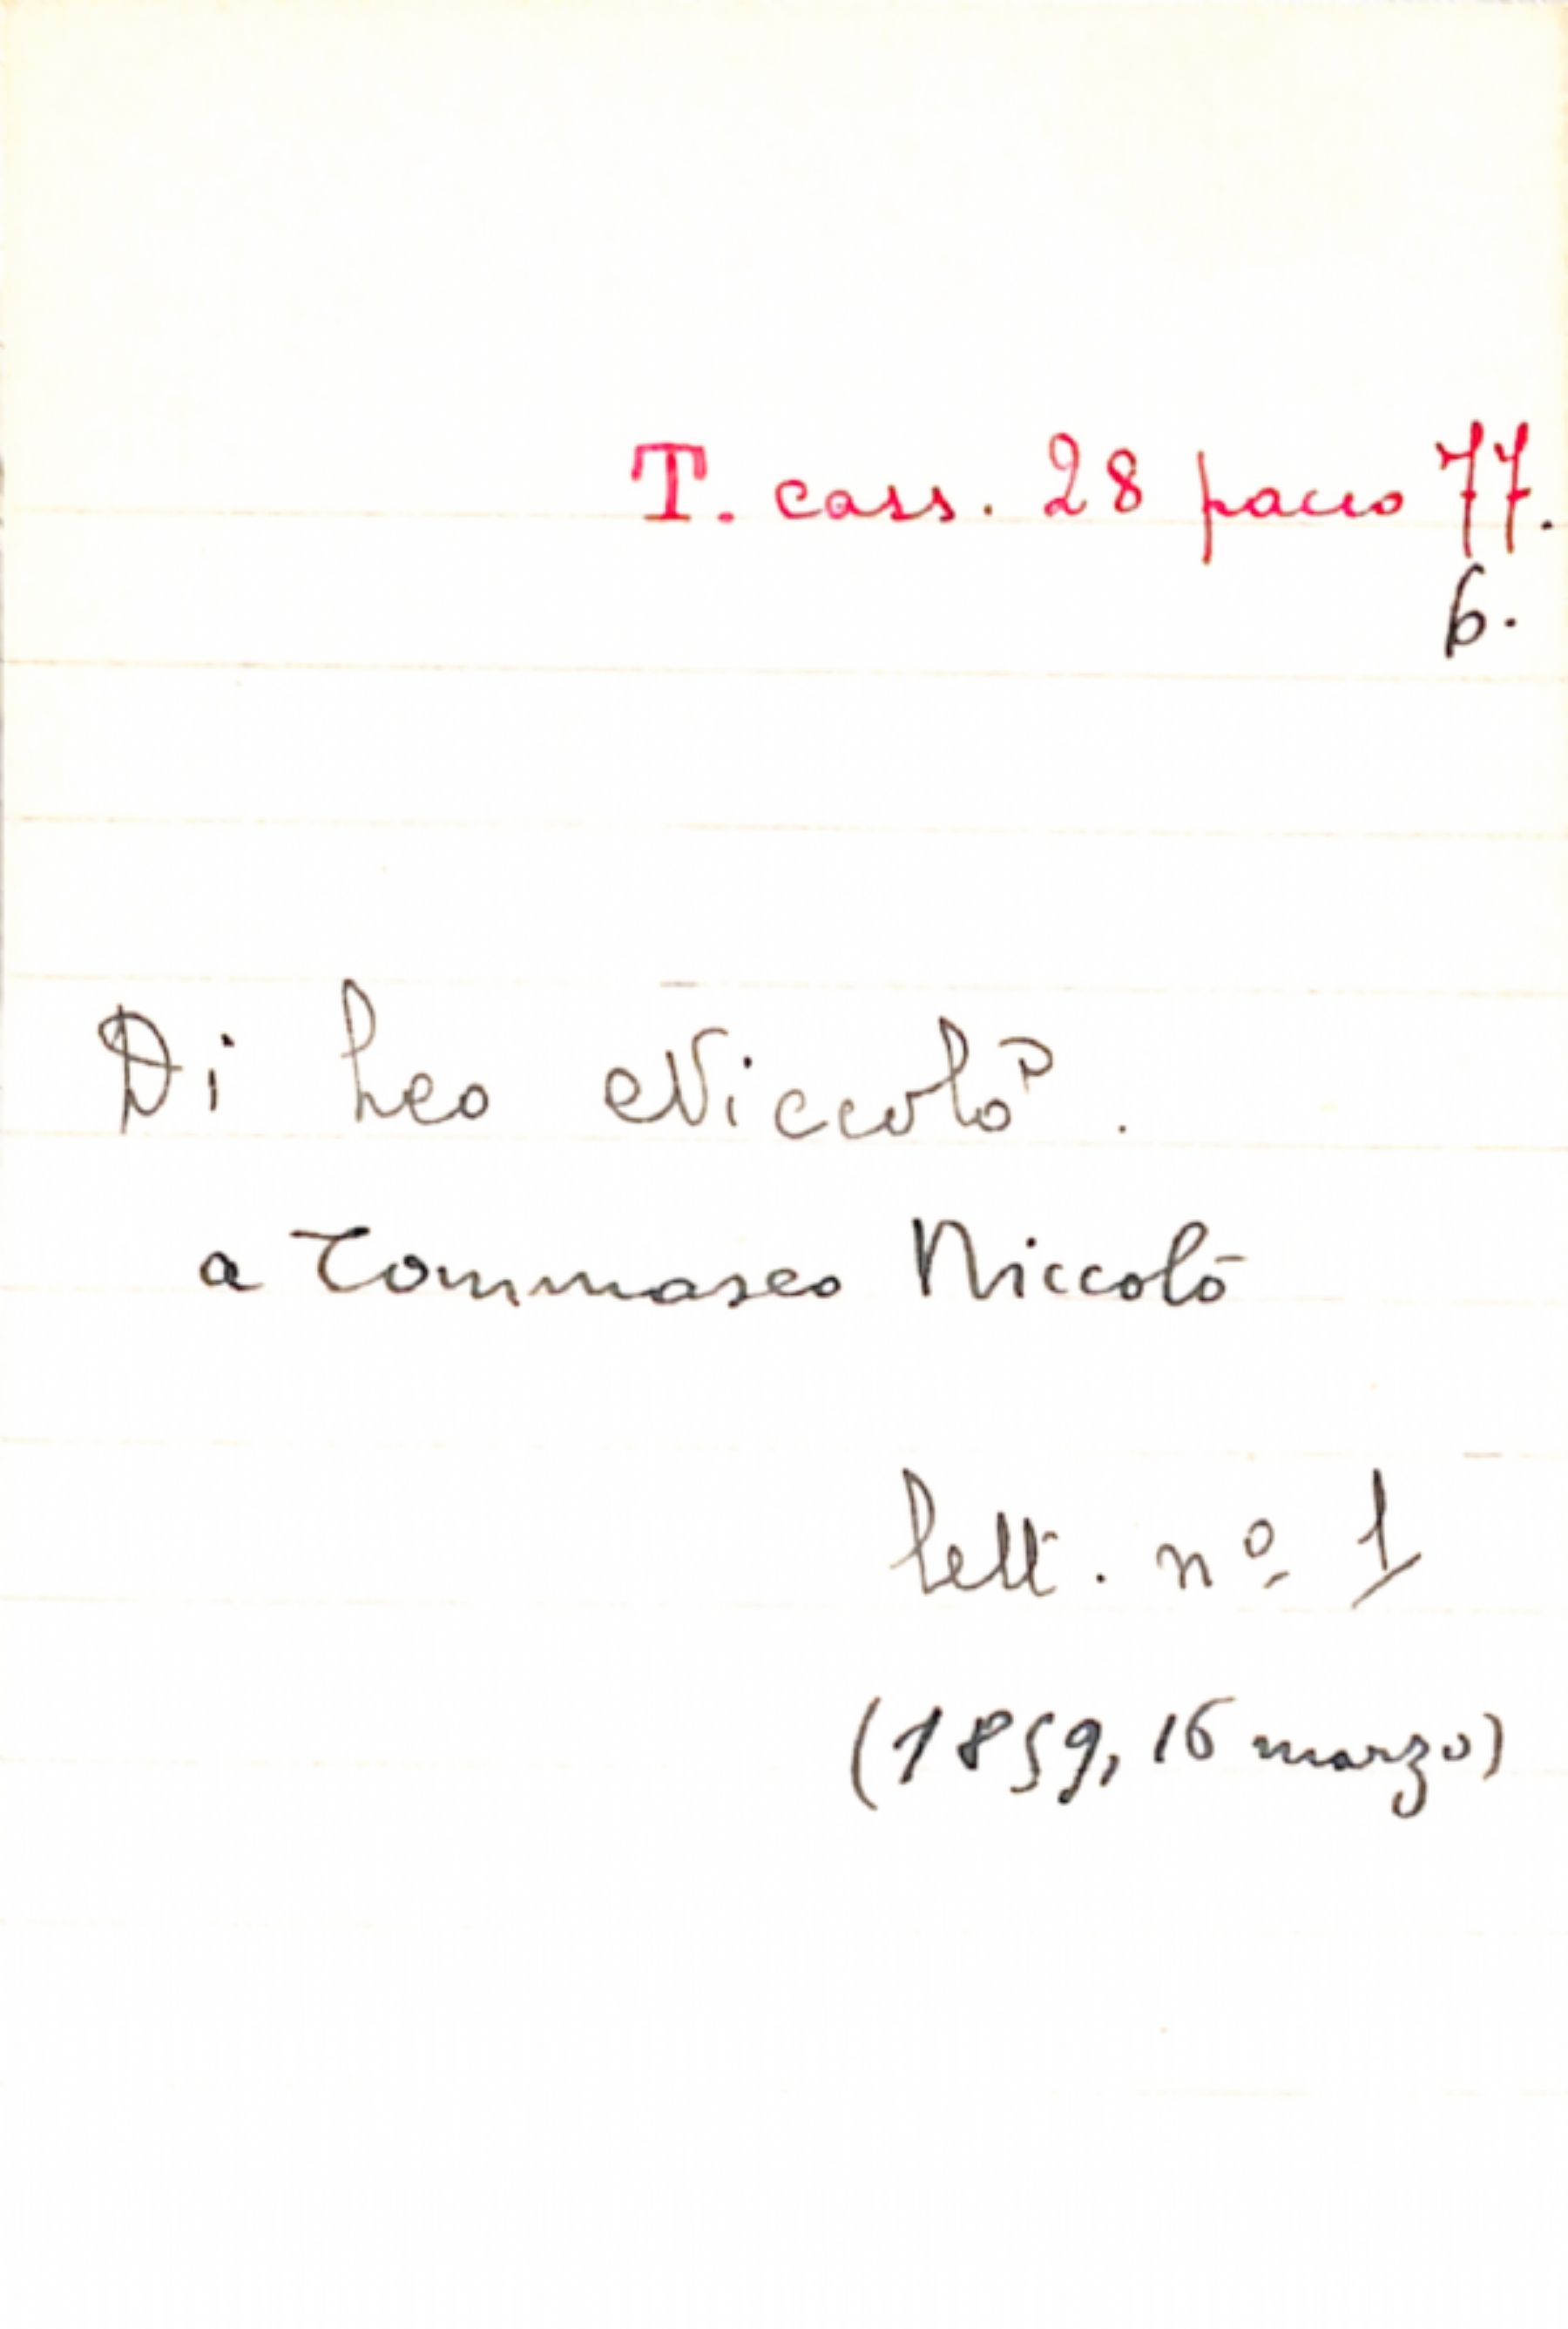 T. cass. 28 pacco 77.
6.
Di Leo Niccolò.
a Tommaseo Niccolò
lett. nº 1
(1859, 16 marzo)